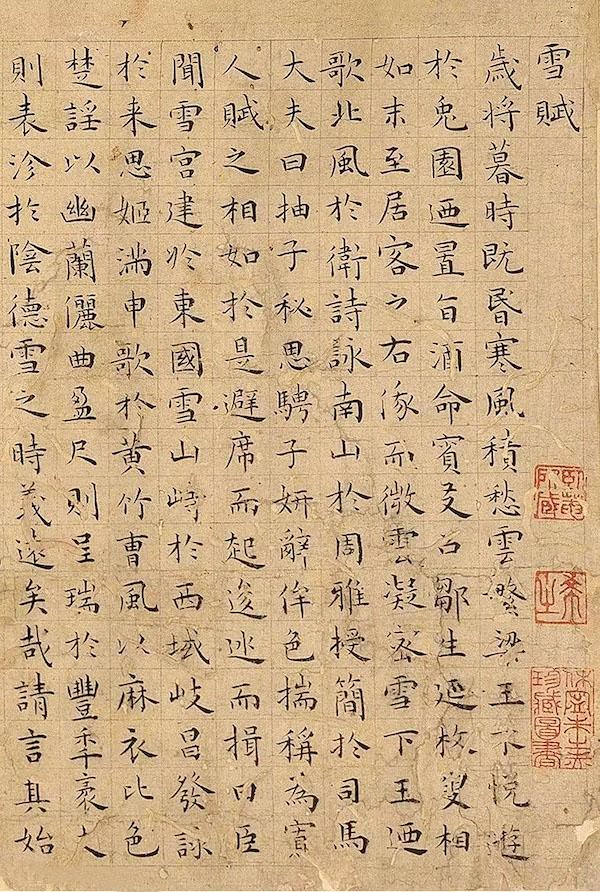 雪賦
歲将暮時既昏寒風積愁雲繁梁王不悅遊
於兔園迺置旨酒命賓友召鄒生延枚叟相
如末至居客之右俄而微雲凝密雪下王迺
歌北風於衛詩詠南山於周雅授簡於司馬
大夫曰抽子秘思騁子妍辭侔色揣稱為寡
人賦之相如於是避席而起逡巡而揖曰臣
聞雪宮建於東國雪山峙於西域岐昌發詠
於来思姬滿申歌於黃竹曹風以麻衣比色
楚謠以幽蘭儷曲盈尺則呈瑞於豐年袤丈
則表沴於陰德雪之時義遠矣哉請言其始